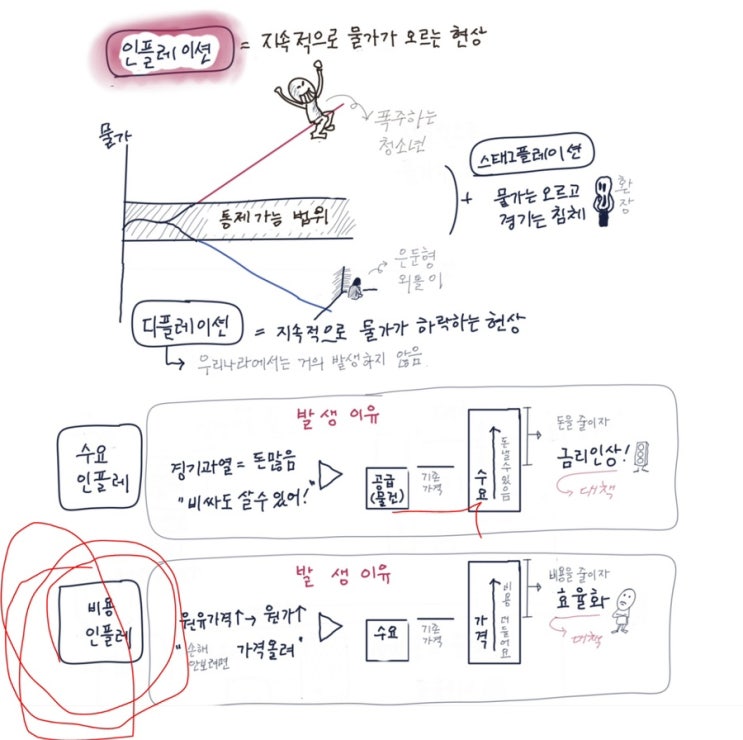 인플레이션 = 지속적으로 물가가 오르는 현상
물가
폭주하는
청소년
스태그플레이션
통제가능 범위
+ 물가는 오르고
경기는 침체
환장
은둔형
외톨이
디플레이션 = 지속적으로 물가가 하락하는 현상
우리나라에서는 거의 발생하지 않음.
수요
인플레
발생 이유
경기과열 = 돈많음
"비싸도 살수 있어!"
공급
(물건)
기존
가격
수요
돈 낼 수 있음
돈을 줄이자
금리인상!
대책
비용
인플레
발생 이유
원유가격↑→ 원가↑
"손해
안보려면 가격올려"
수요
기존
가격
가격
비용 더 들어요
비용을 줄이자
효율화
대책